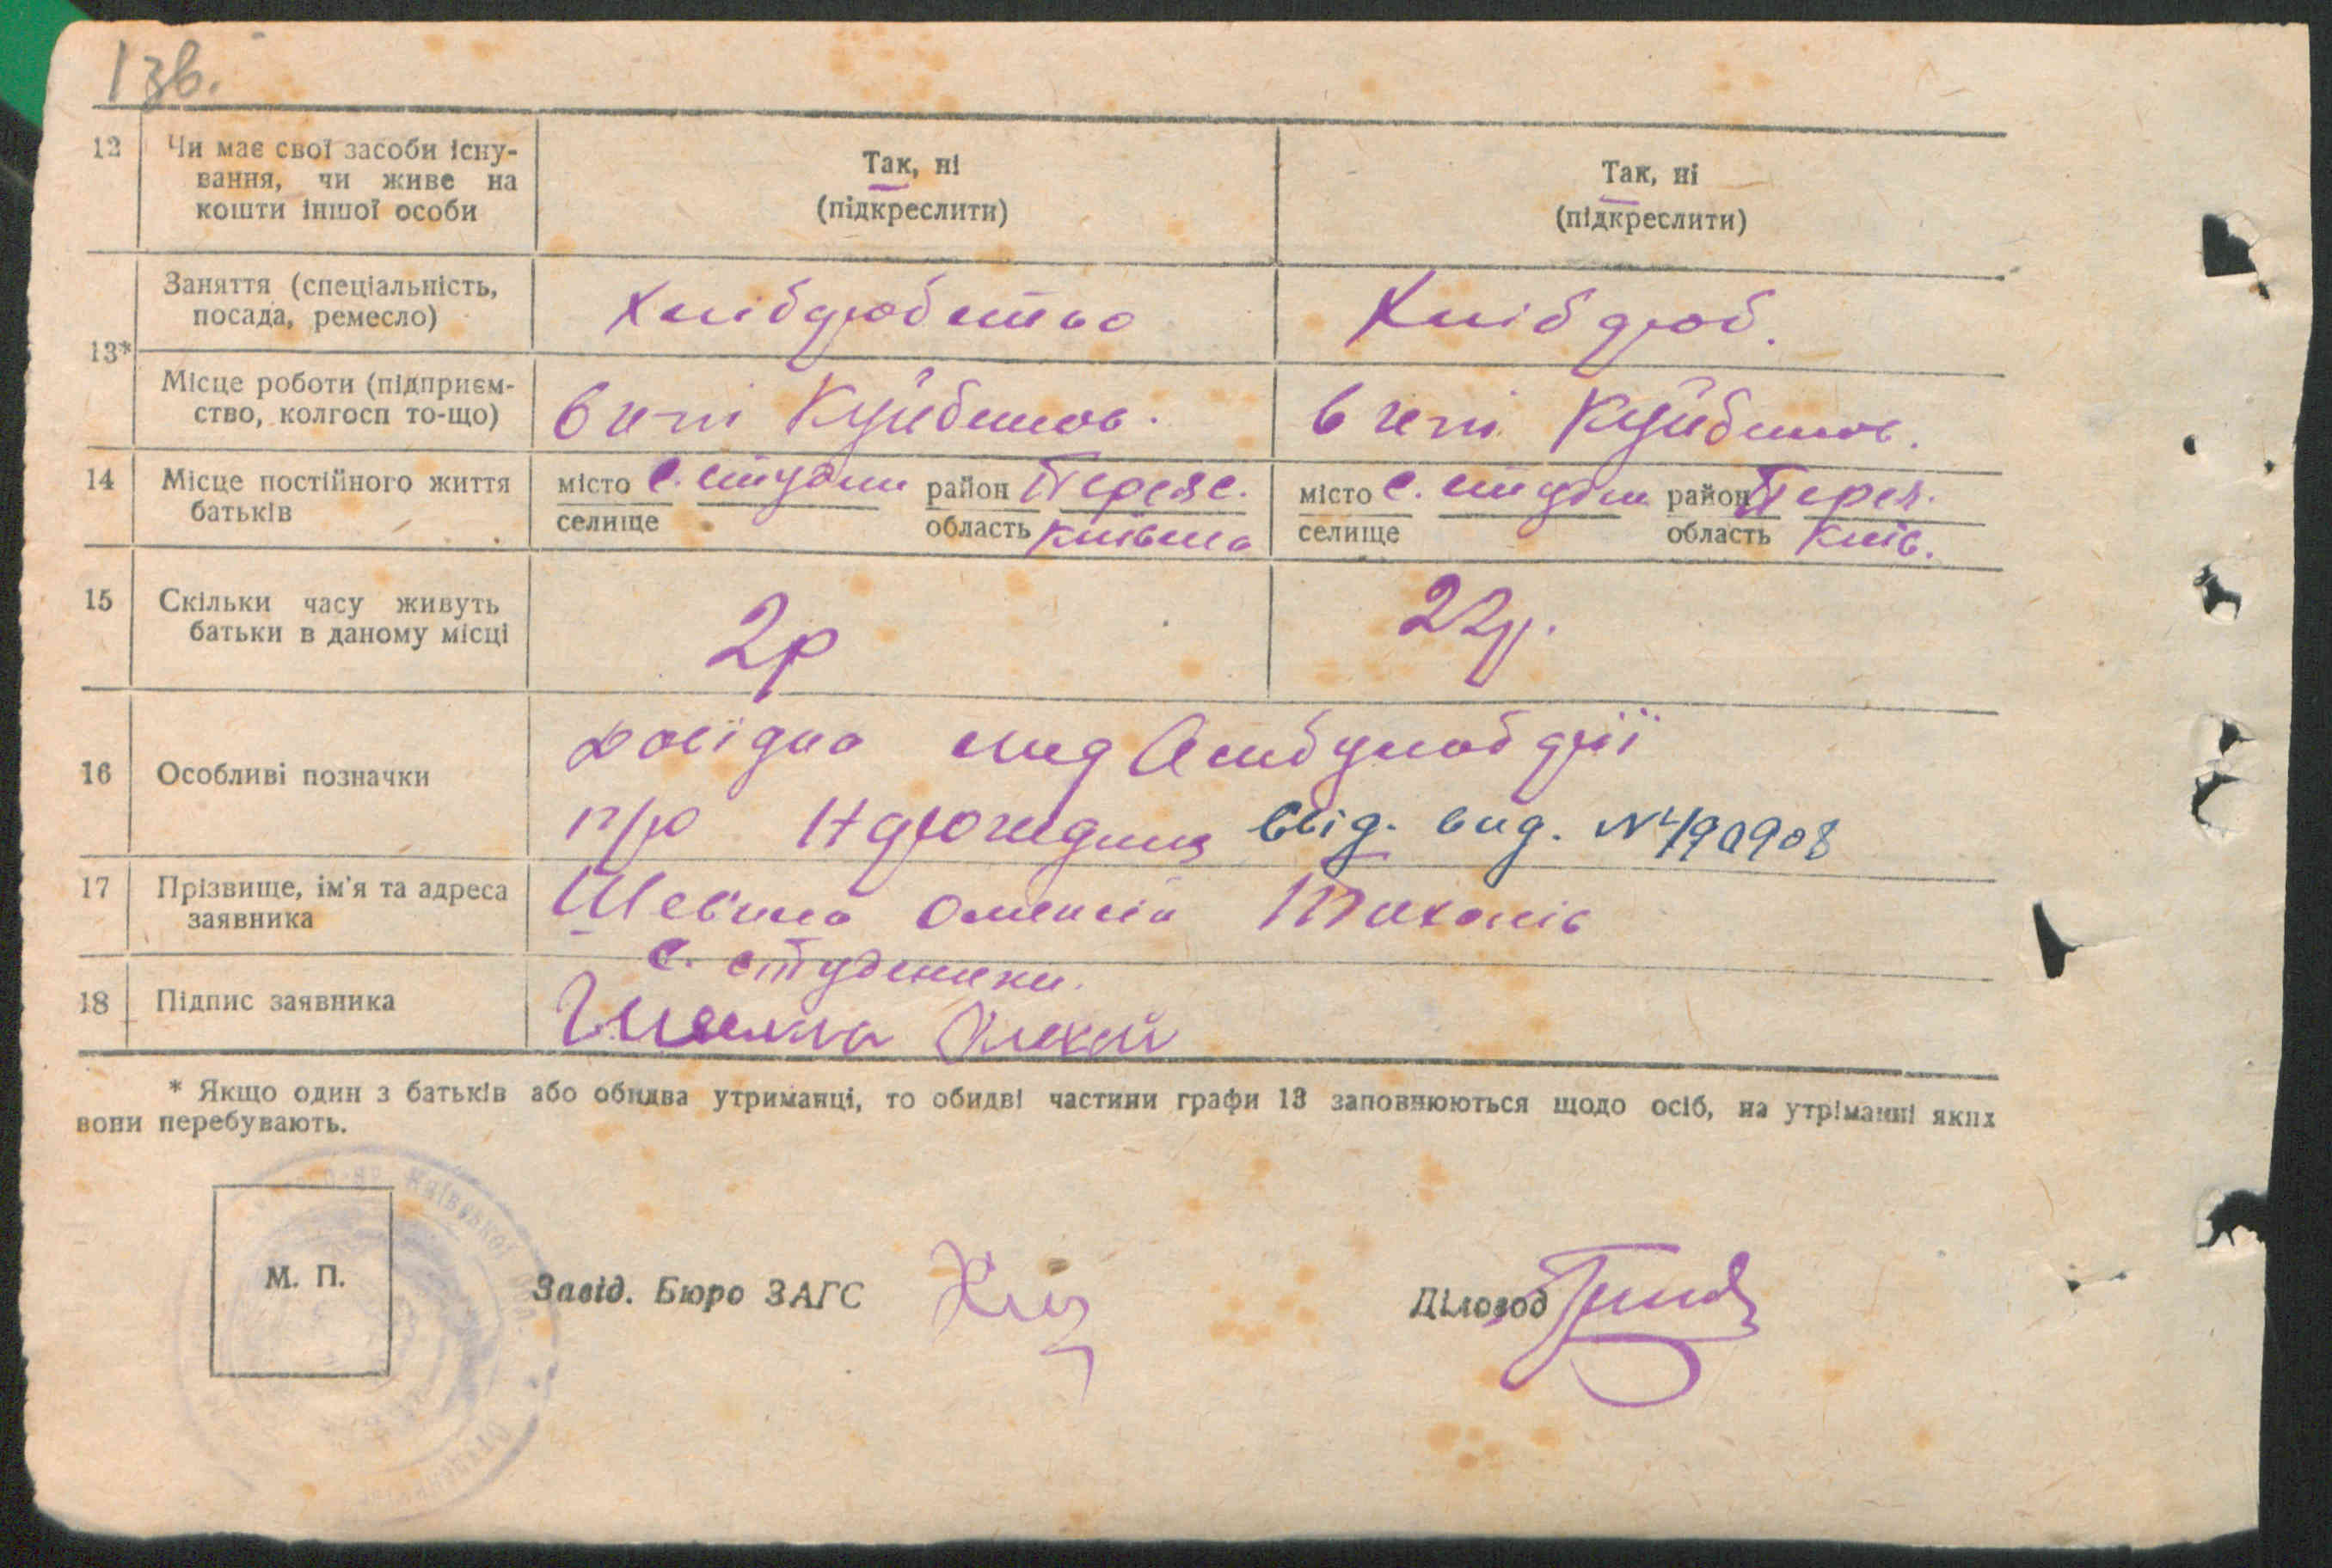 1зв.
12 Чи має свої засоби існу-
вання, чи живе на
кошти іншої особи
Так, ні
(підкреслити)
Так, ні
(підкреслити)
13*
Заняття (спеціальність,
посада, ремесло)
Хлібдробство
Хлібдроб.
Місце роботи (підприєм-
ство, колгосп то-що)
в Куйбишов.
в Куйбишов.
14 Місце постійного життя
батьків
місто с. Студен район Переяс.
селище область Київська
місто с. Студен район Перея.
селище область Київ.
15 Скільки часу живуть
батьки в даному місці
2р
22р.
16 Особливі позначки
довідка від Амбулаодрії
п/ро Нарождиния Свід. вид. № 190908
17 Прізвище, ім'я та адреса
заявника
Шевчко Олексій
с. Студеники.
18 Підпис заявника
Олексій
* Якщо один з батьків або обидва утриманці, то обидві частини графи 13 заповнюються щодо осіб, на утріманні яких
вони перебувають.
М. П.
Завід. Бюро ЗАГС
Діловод
р-ну Київської обл.